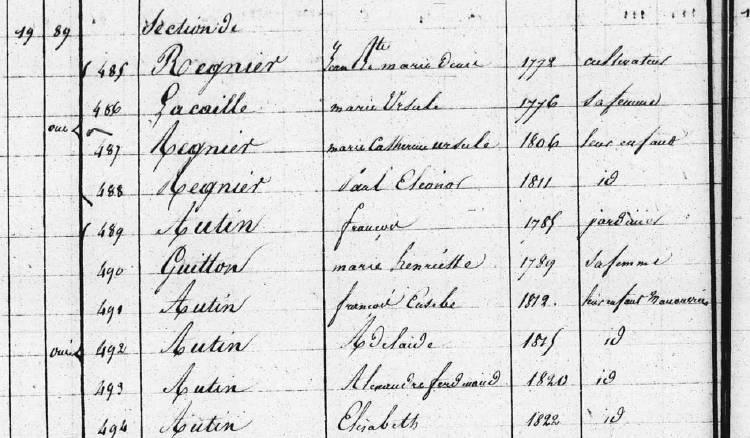 19 89 Section de
485 Regnier Jean Bte marie Denis 1772 cultivateur
486 Lacaille marie Ursule 1776 sa femme
oui 487 Regnier marie Catherine ursule 1806 leur enfant
488 Regnier Paul Eléonor 1811 id
489 Autin françois 1785 jardinier
490 Guitton marie henriette 1789 sa femme
491 Autin françois Eusebe 1812 leur enfant Manouvrier
oui 492 Autin Adelaide 1815 id
493 Autin Alexandre ferdinand 1820 id
494 Autin Elisabeth 1822 id